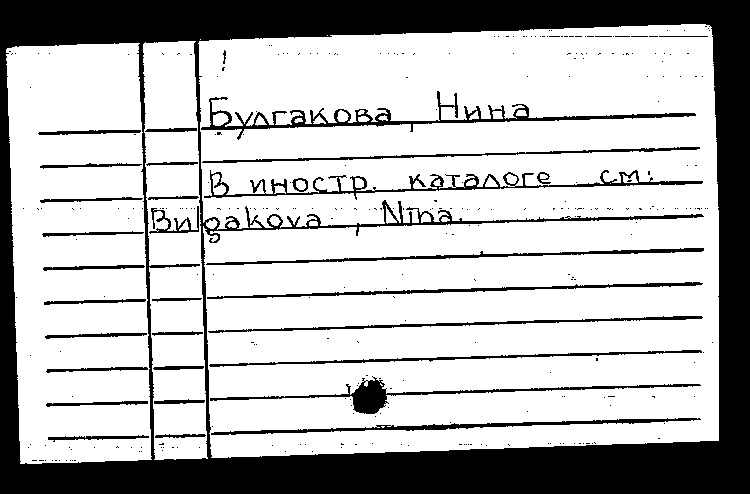 Булгакова, Нина
В иностр. каталоге см:
Bulgakova, Nina.